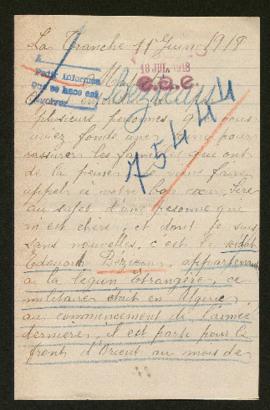 La Tranche 11 Juin 1918
18 JUIL 1918
e.a.e.
A.
Pedir informes
que se hace en
75444
plusieurs personnes que vous
aviez fondé une
rassurer les familles qui ont
de la peine,
appel à votre bon cœur,
au sujet d'une personne que
m'est chère, et dont je suis
sans nouvelles, c'est le soldat
Edouard appartenant
à la légion Etrangère, ce
militaire était en Algérie,
au commencement de l'année
dernière, il est parti pour le
front d'Orient au mois de